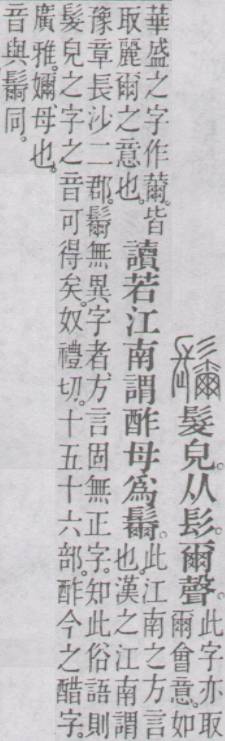 髮皃。从髟。爾聲。此字亦取
爾會意。如
華盛之字作薾。皆
取麗爾之意也。
讀若江南謂酢母爲䰐。此江南之方言
也。漢之江南謂
豫章長沙二郡。䰐無異字者、方言固無正字。知此俗語則
髮皃之字之音可得矣。奴禮切。十五十六部。酢今之醋字。
廣雅。嬭、母也。
音與䰐同。